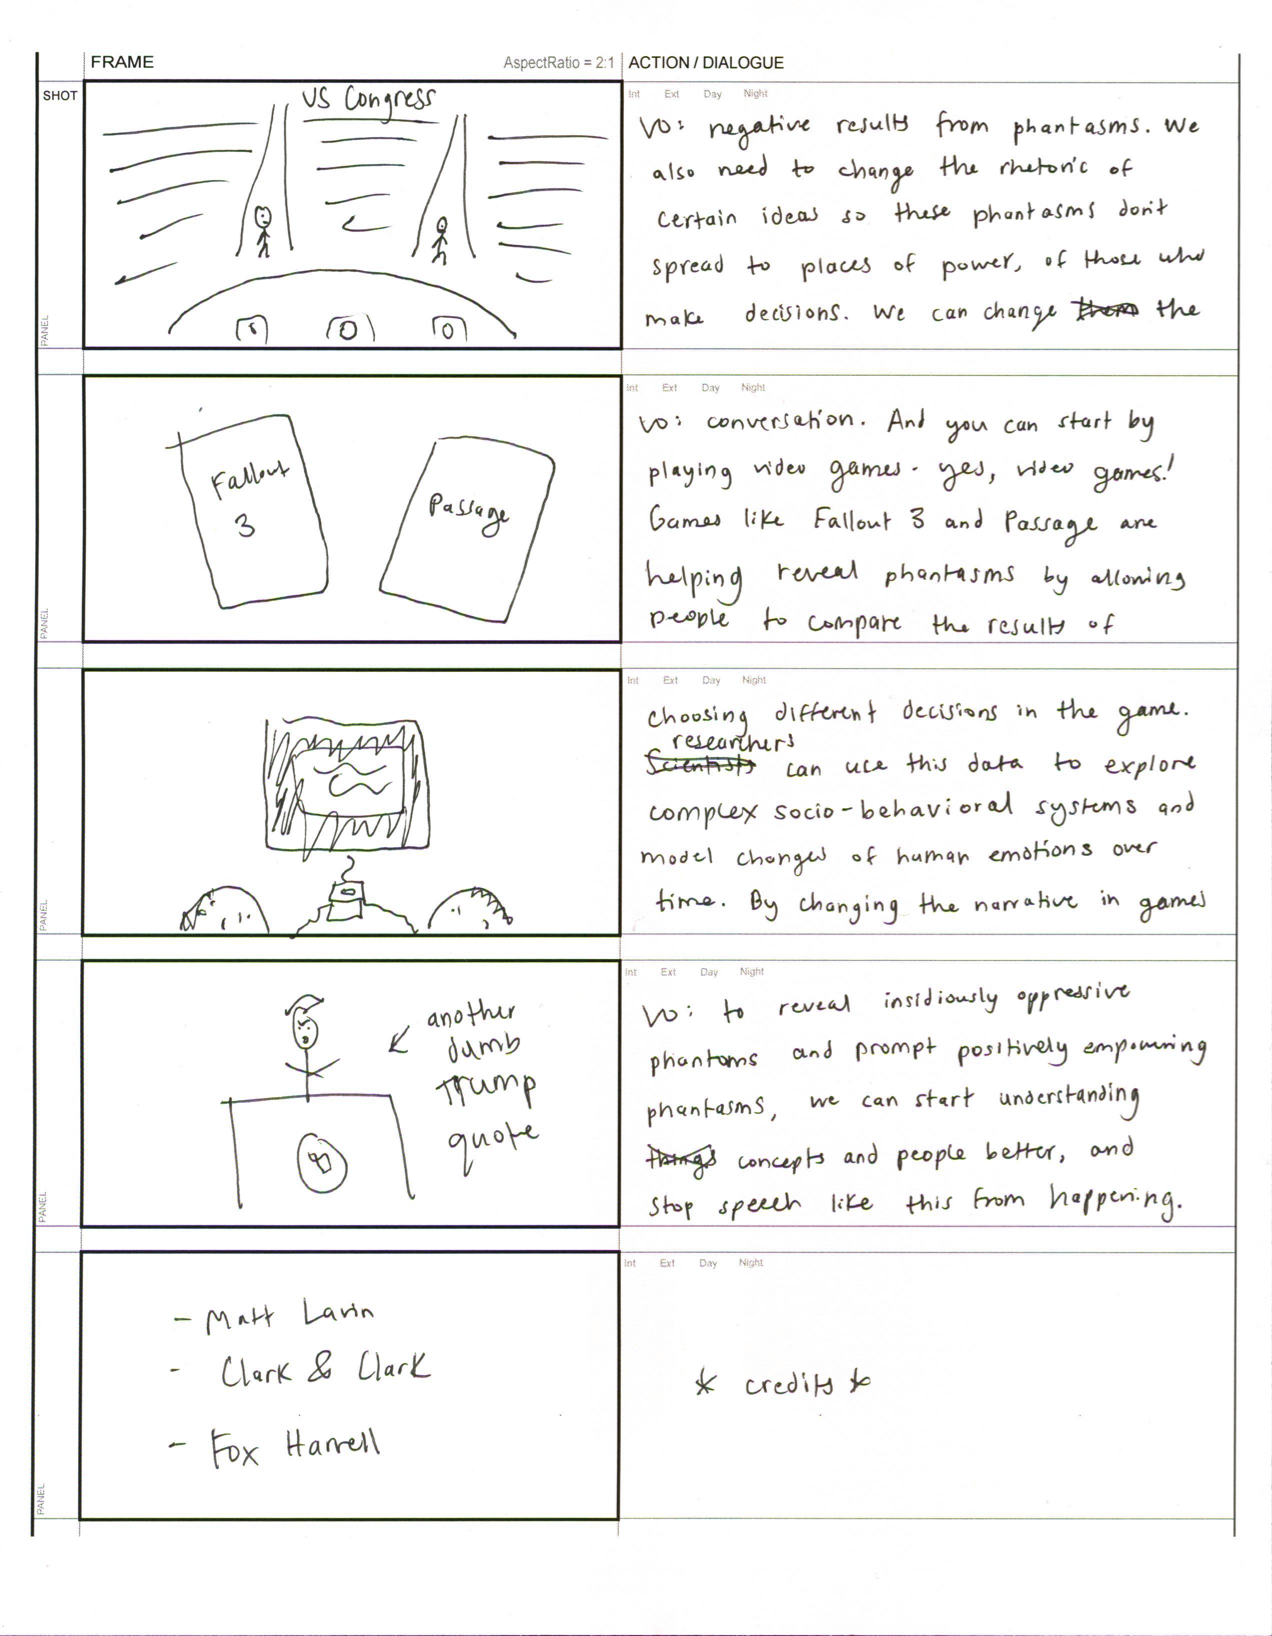 FRAME
AspectRatio = 2:1
ACTION / DIALOGUE
SHOT
US Congress
PANEL
Int Ext Day Night
VO: negative results from phantasms. We
also need to change the rhetoric of
certain ideas so these phantasms don't
spread to places of power, of those who
make decisions. We can change them the
Fallout
3
Passage
PANEL
Int Ext Day Night
VO: conversation. And you can start by
playing video games - yes, video games!
Games like Fallout 3 and Passage are
helping reveal phantasms by allowing
people to compare the results of
PANEL
Int Ext Day Night
choosing different decisions in the game.
researchers
Scientists can use this data to explore
complex socio-behavioral systems and
model changes of human emotions over
time. By changing the narrative in games
another
dumb
Trump
quote
PANEL
Int Ext Day Night
VO: to reveal insidiously oppressive
phantoms and prompt positively empowering
phantasms, we can start understanding
things concepts and people better, and
stop speech like this from happening.
- Matt Lavin
- Clark & Clark
- Fox Harrell
PANEL
Int Ext Day Night
* credits *